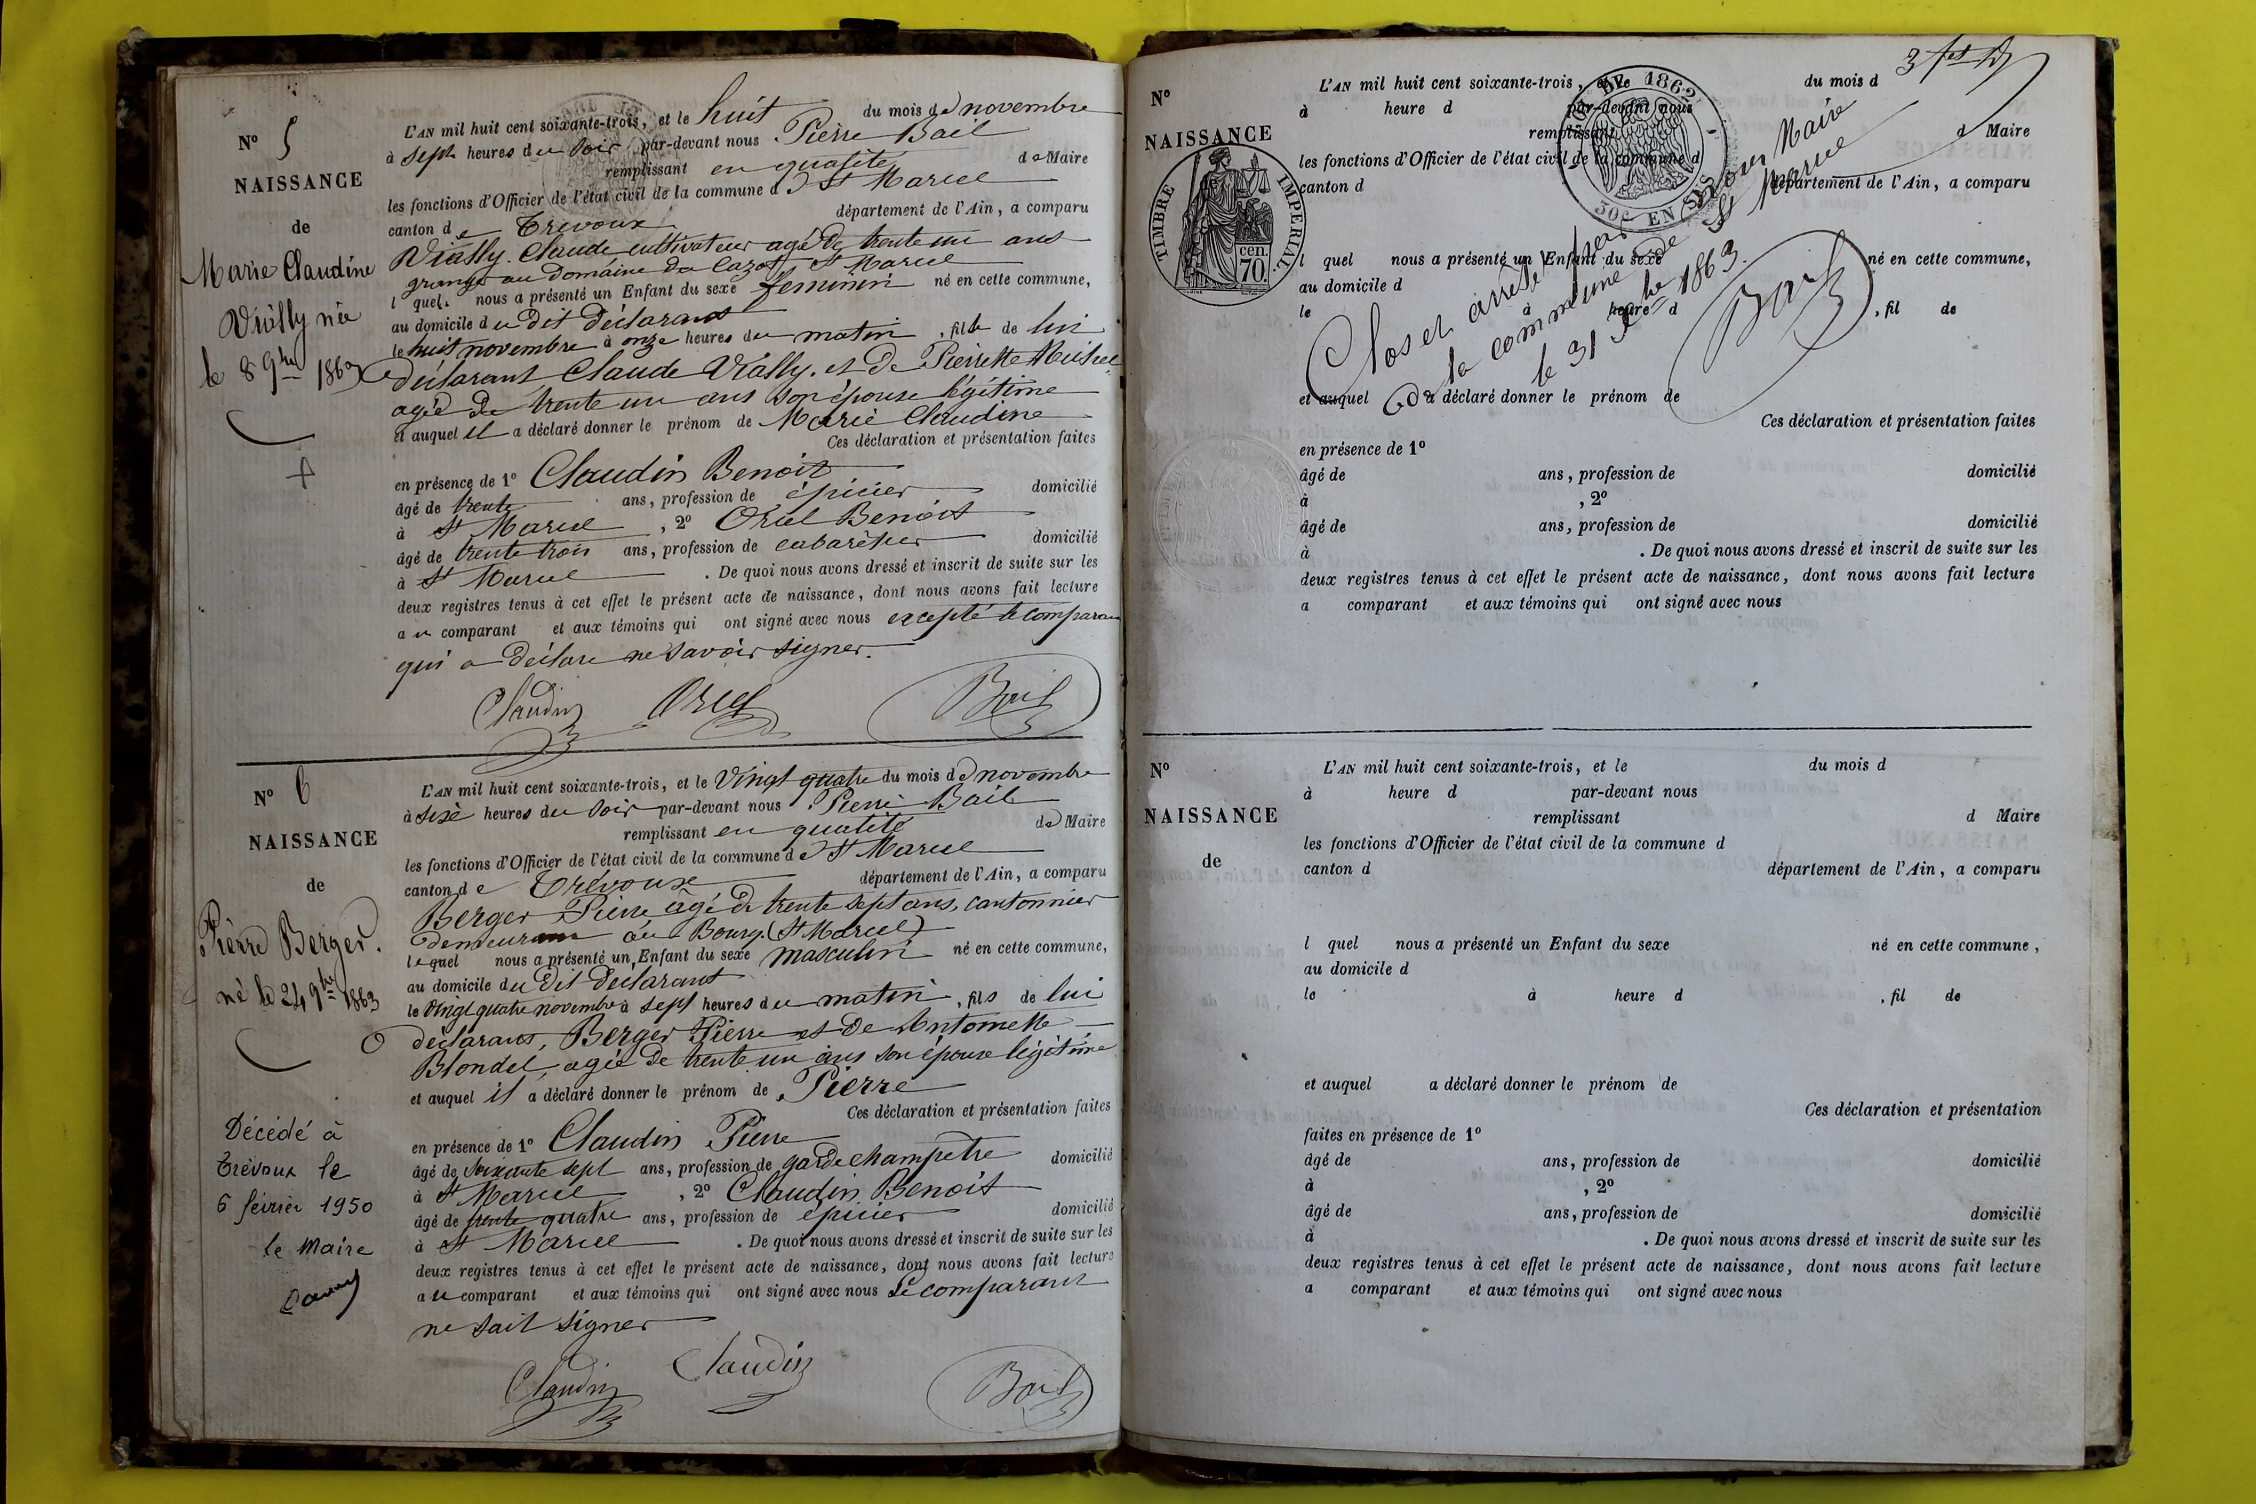 N° 5
NAISSANCE
de
Marie Claudine
Vially née
le 8 9bre 1863
L'AN mil huit cent soixante-trois, et le huit du mois de novembre
à sept heures du soir par-devant nous Pierre Bail
remplissant en qualité de Maire
les fonctions d'Officier de l'état civil de la commune de St Marcel
canton de Trévoux département de l'Ain, a comparu
Vially Claude cultivateur agé de trente un ans
granger au Domaine du St Marcel
lquel nous a présenté un Enfant du sexe féminin né en cette commune,
au domicile du dit déclarant
le huit novembre à onze heures du matin, fille de lui
déclarant Claude Vially, et de Pierrette
agée de trente un ans son épouse légitime
et auquel il a déclaré donner le prénom de Marie Claudine
Ces déclaration et présentation faites
en présence de 1° Claudin Benoit
âgé de trente ans, profession de épicier domicilié
à St Marcel, 2° Oriel Benoit
âgé de trente trois ans, profession de cabaretier domicilié
à St Marcel. De quoi nous avons dressé et inscrit de suite sur les
deux registres tenus à cet effet le présent acte de naissance, dont nous avons fait lecture
au comparant et aux témoins qui ont signé avec nous excepté le comparant
qui a déclaré ne savoir signer.
Claudin Oriel Bail
N° 6
NAISSANCE
de
Pierre Berger.
né le 24 9bre 1863
Décédé à
Trévoux le
6 février 1950
le Maire
L'AN mil huit cent soixante-trois, et le vingt quatre du mois de novembre
à sixe heures du soir par-devant nous Pierre Bail
remplissant en qualité de Maire
les fonctions d'Officier de l'état civil de la commune de St Marcel
canton de Trévoux département de l'Ain, a comparu
Berger Pierre âgé de trente sept ans, cantonnier
demeurant au Bourg (St Marcel)
lequel nous a présenté un Enfant du sexe masculin né en cette commune,
au domicile du dit déclarant
le vingt quatre novembre à sept heures du matin, fils de lui
déclarant, Berger Pierre et de Antoinette
Blondel, agée de trente un ans son épouse légitime
et auquel il a déclaré donner le prénom de Pierre
Ces déclaration et présentation faites
en présence de 1° Claudin Pierre
âgé de soixante sept ans, profession de garde champetre domicilié
à St Marcel, 2° Claudin Benoit
âgé de trente quatre ans, profession de épicier domicilié
à St Marcel. De quoi nous avons dressé et inscrit de suite sur les
deux registres tenus à cet effet le présent acte de naissance, dont nous avons fait lecture
au comparant et aux témoins qui ont signé avec nous le comparant
ne sait signer
Claudin Claudin Bail
N°
NAISSANCE
de
TIMBRE IMPERIAL
cen.
70.
1862
30c EN SUS
L'AN mil huit cent soixante-trois, et le du mois d
à heure d par-devant nous
remplissant d Maire
les fonctions d'Officier de l'état civil de la commune d
canton d département de l'Ain, a comparu
l quel nous a présenté un Enfant du sexe né en cette commune,
au domicile d
le à heure d, fil de
Clos et arrêté par nous Maire
de la commune de St Marcel
le 31 Xbre 1863.
Bail
et auquel a déclaré donner le prénom de
Ces déclaration et présentation faites
en présence de 1°
âgé de ans, profession de domicilié
à , 2°
âgé de ans, profession de domicilié
à . De quoi nous avons dressé et inscrit de suite sur les
deux registres tenus à cet effet le présent acte de naissance, dont nous avons fait lecture
a comparant et aux témoins qui ont signé avec nous
N°
NAISSANCE
de
L'AN mil huit cent soixante-trois, et le du mois d
à heure d par-devant nous
remplissant d Maire
les fonctions d'Officier de l'état civil de la commune d
canton d département de l'Ain, a comparu
l quel nous a présenté un Enfant du sexe né en cette commune,
au domicile d
le à heure d , fil de
et auquel a déclaré donner le prénom de
Ces déclaration et présentation
faites en présence de 1°
âgé de ans, profession de domicilié
à , 2°
âgé de ans, profession de domicilié
à . De quoi nous avons dressé et inscrit de suite sur les
deux registres tenus à cet effet le présent acte de naissance, dont nous avons fait lecture
a comparant et aux témoins qui ont signé avec nous